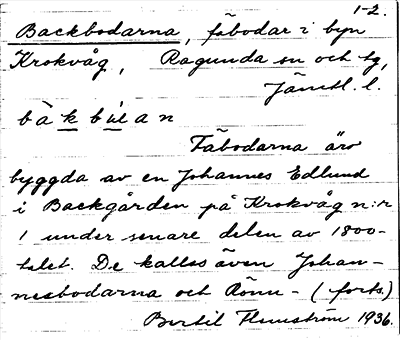 1-2.
Backbodarna, fäbodar i byn
Krokvåg, Ragunda sn och tg,
Jämtl. l.
bàkbùan
Fäbodarna äro
byggda av en Johannes Edlund
i Backgården på Krokvåg n:r
1 under senare delen av 1800-
talet. De kallas även Johan-
nesbodarna och Rönn- (forts.)
Bertil Flemström 1936.